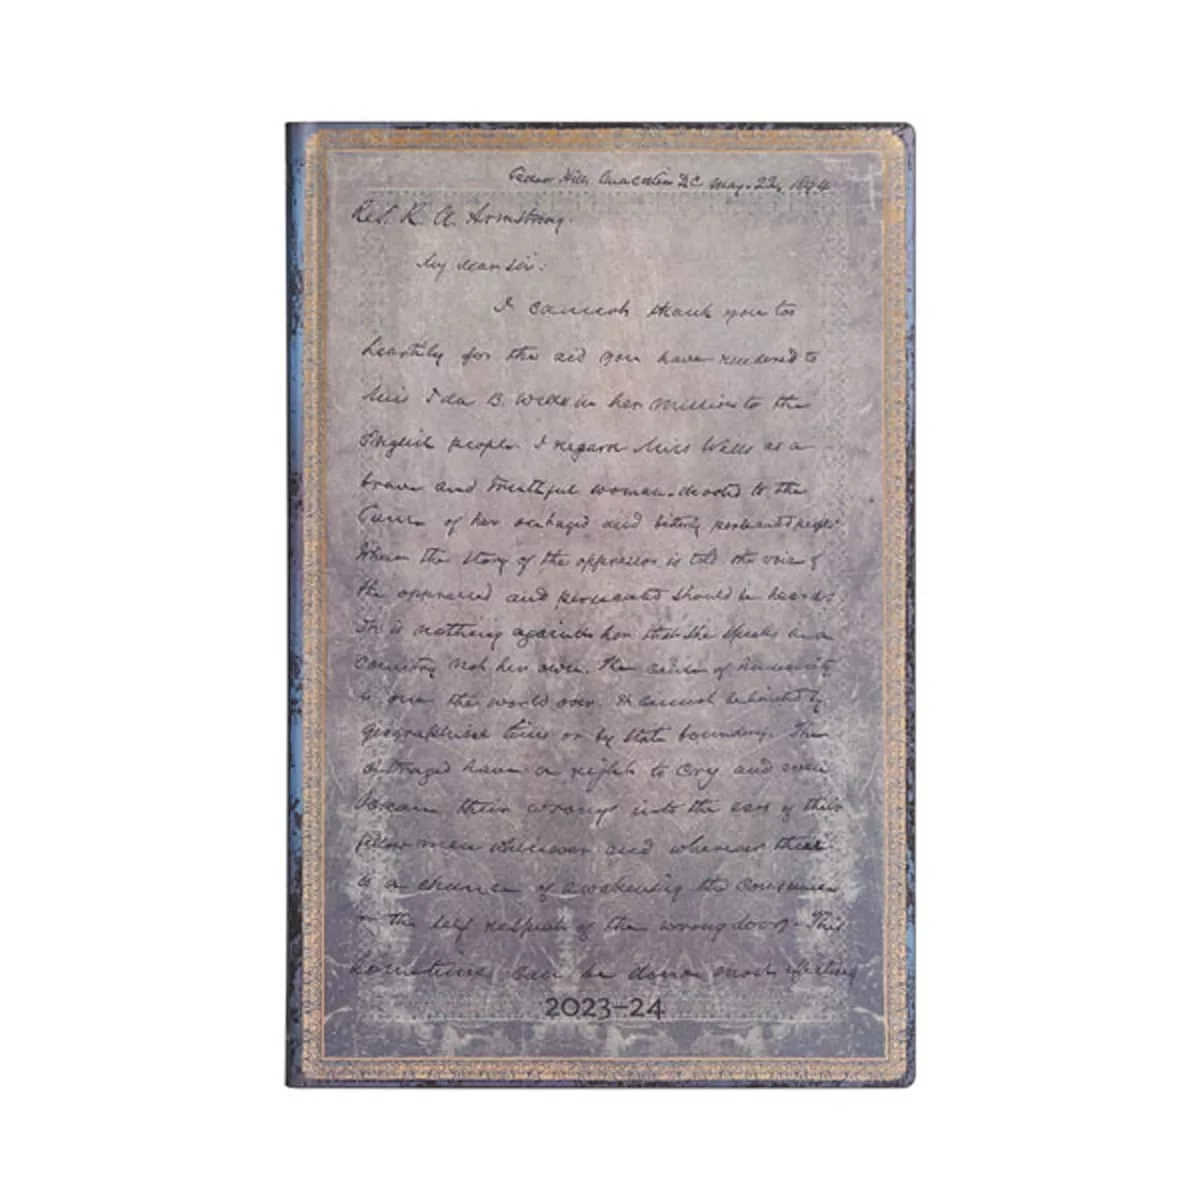 Cedar Hill, Anacostia D.C. May. 22, 1894
Rev. R. A. Armstrong.
My dear sir:
I cannot thank you too
heartily for the aid you have rendered to
Miss Ida B. Wells in her mission to the
English people. I regard Miss Wells as a
brave and truthful woman, devoted to the
cause of her outraged and bitterly persecuted people.
When the story of the oppressor is told the voice of
the oppressed and persecuted should be heard.
It is nothing against her that she speaks in a
country not her own. The cause of humanity
is one the world over. It cannot be limited by
geographical lines or by state boundary. The
outraged have a right to cry and even
scream their wrongs into the ears of their
fellow men whenever and wherever there
is a chance of awakening the conscience
or the self respect of the wrong doer. This
sometimes can be done most effective
2023–24